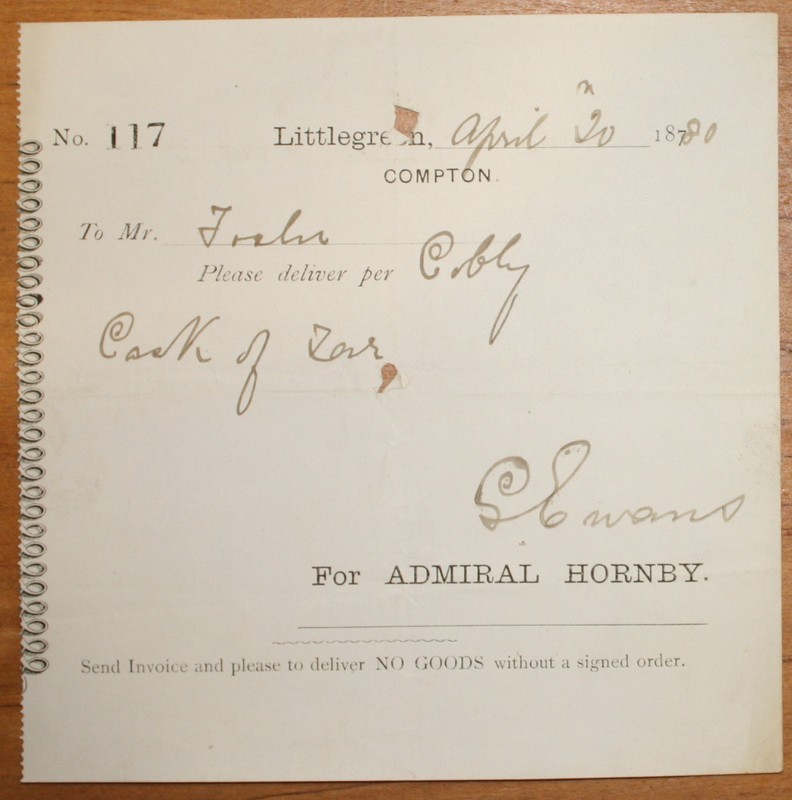 No. 117 Littlegreen, April 20 18780
COMPTON.
To Mr.
Please deliver per Cobby
Cask of Tar,
G Evans
For ADMIRAL HORNBY.
Send Invoice and please to deliver NO GOODS without a signed order.